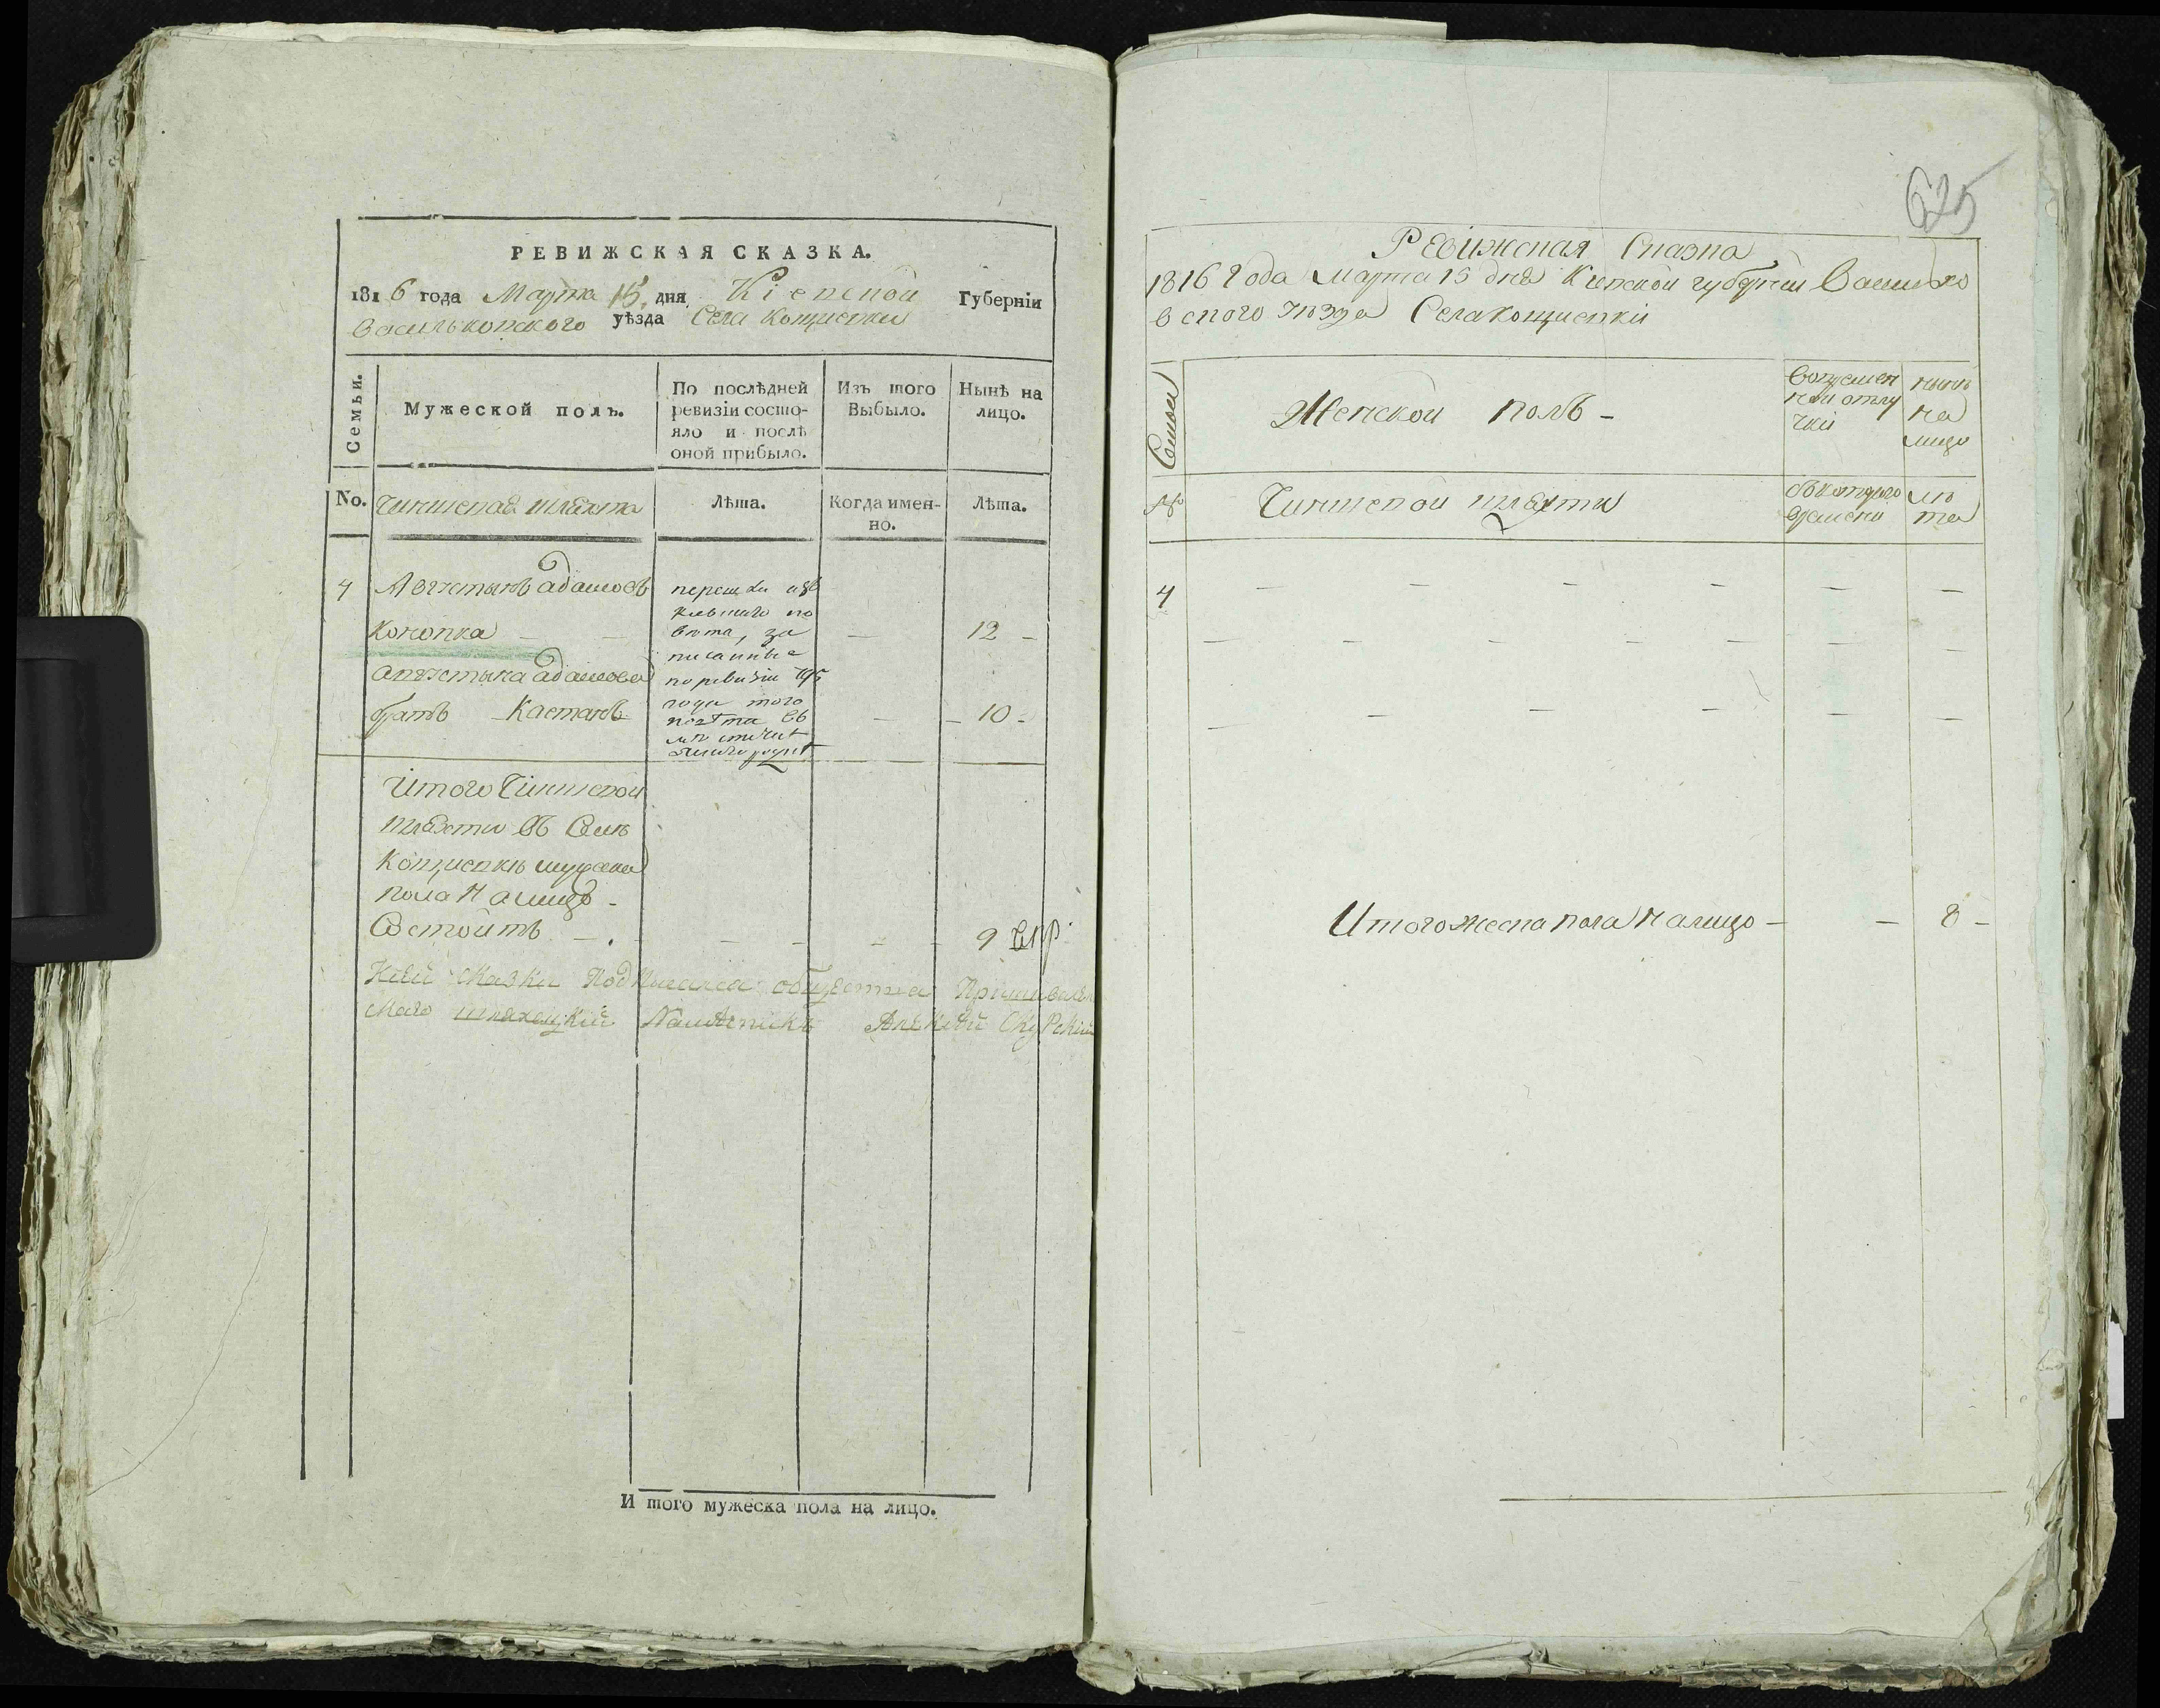 РЕВИЖСКАЯ СКАЗКА.
1816 года Марта 15 дня Кіевской Губерніи
Васильковского уѣзда Села Кощиевки
Семьи.
Мужеской полъ.
По послѣдней
ревизіи состо-
яло и послѣ
оной прибыло.
Изъ того
Выбыло.
Нынѣ на
лицо.
No.
Чиншевая шляхта
Лѣта.
Когда имен-
но.
Лѣта.
4
Августынъ адамовъ
Конопка
12
Августына адамова
братъ Каетанъ
10
перешли изъ
вита, за
писанные
по ревизіи 795
года того
Итого Чиншевой
шляхты въ Селѣ
Кощиевкѣ мужеска
пола на лицо
Состоитъ 9
К сей сказки Подписался общества
шляхецкій Намѣсникъ Алексѣй Скурскій
И того мужеска пола на лицо.
625
Ревіжская Сказка
1816 Года Марта 15 дня Киевской губерніи Василько
вского уѣзда Села Кощиевки
Семьи
Женской полъ
Во времен
ной отлу
чкѣ
нынѣ
на
лицо
№
Чиншевой шляхты
съ которого
времени
лѣ
та
4
Итого женска пола на лицо 8